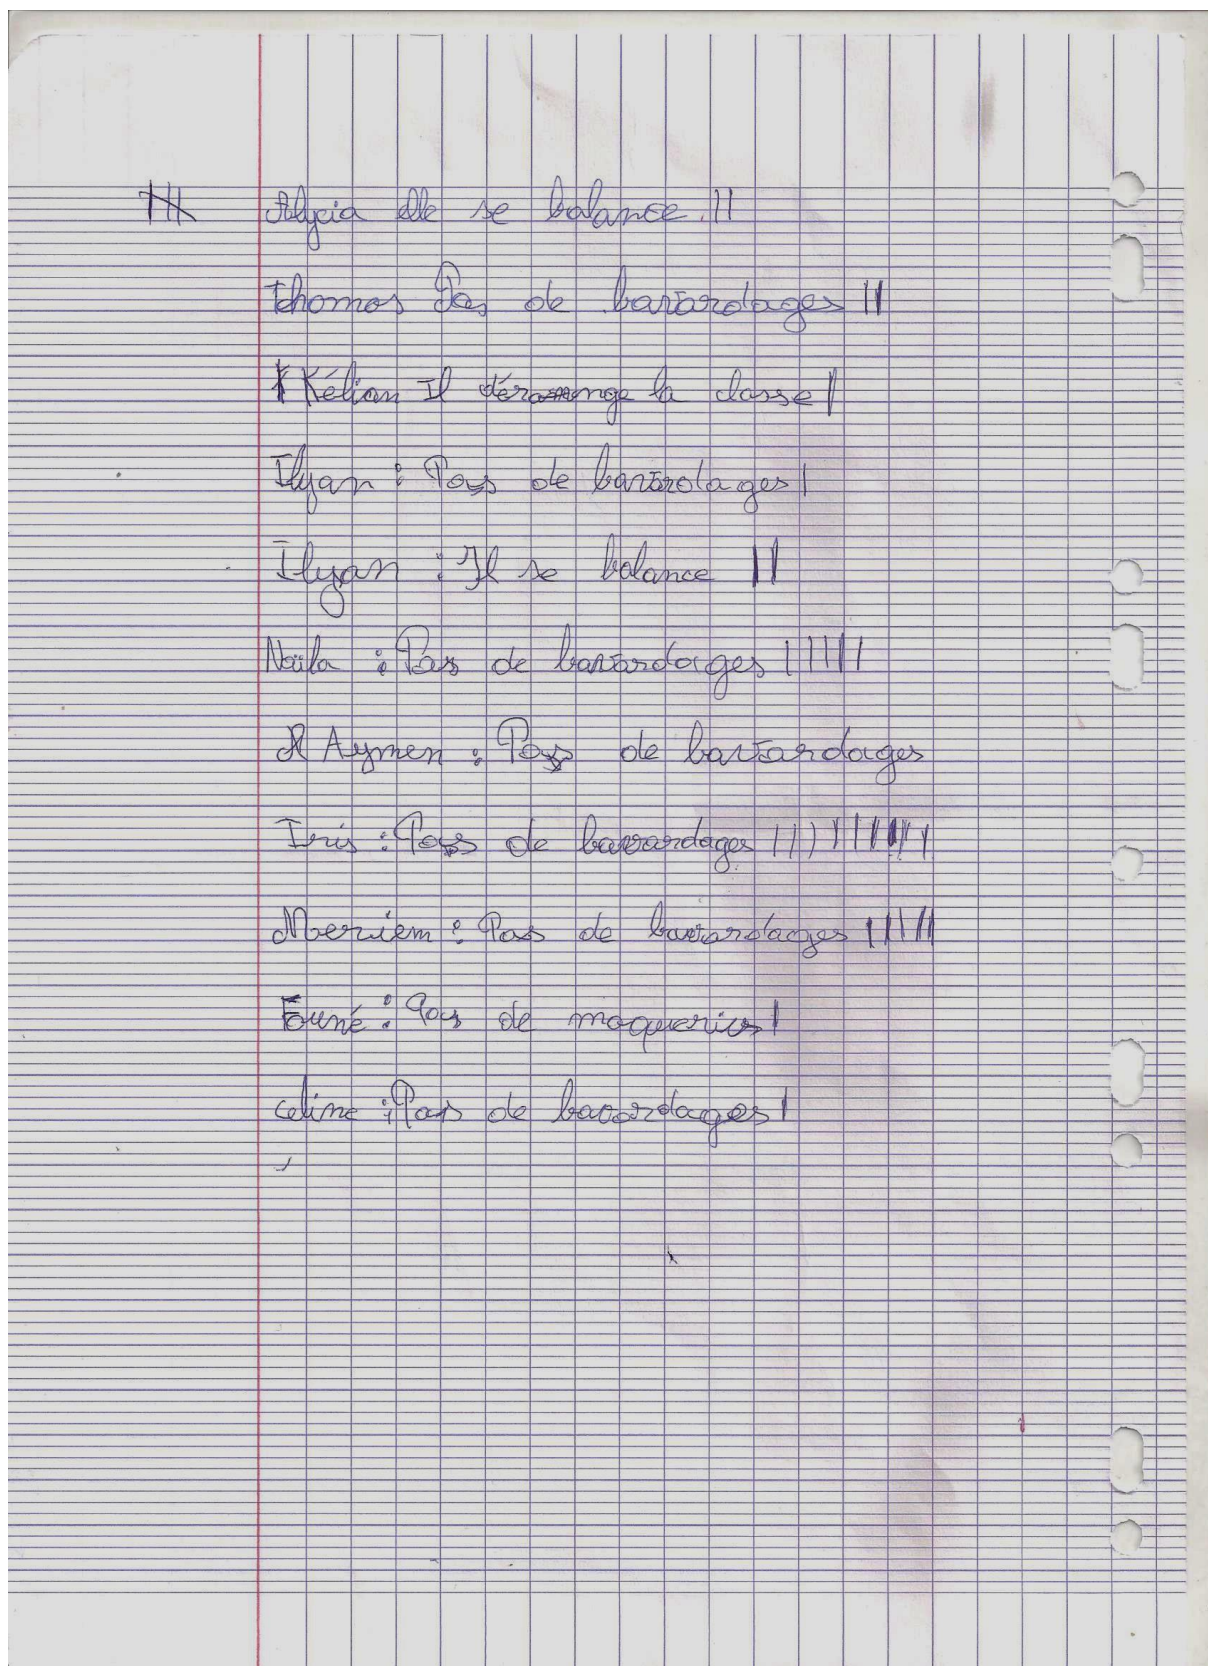 Alycia elle se balance. ||
Thomas Pas de bavardages ||
Kélian Il déramenge la classe |
Ilyan : Pas de bavardages |
Ilyan : Il se balance ||
Naïla : Pas de bavardages |||||
Aymen : Pas de bavardages
Iris : Pas de bavardages ||||||||||
Meriem : Pas de bavardages |||||
Founé : Pas de moqueries |
celine : Pas de bavardages |